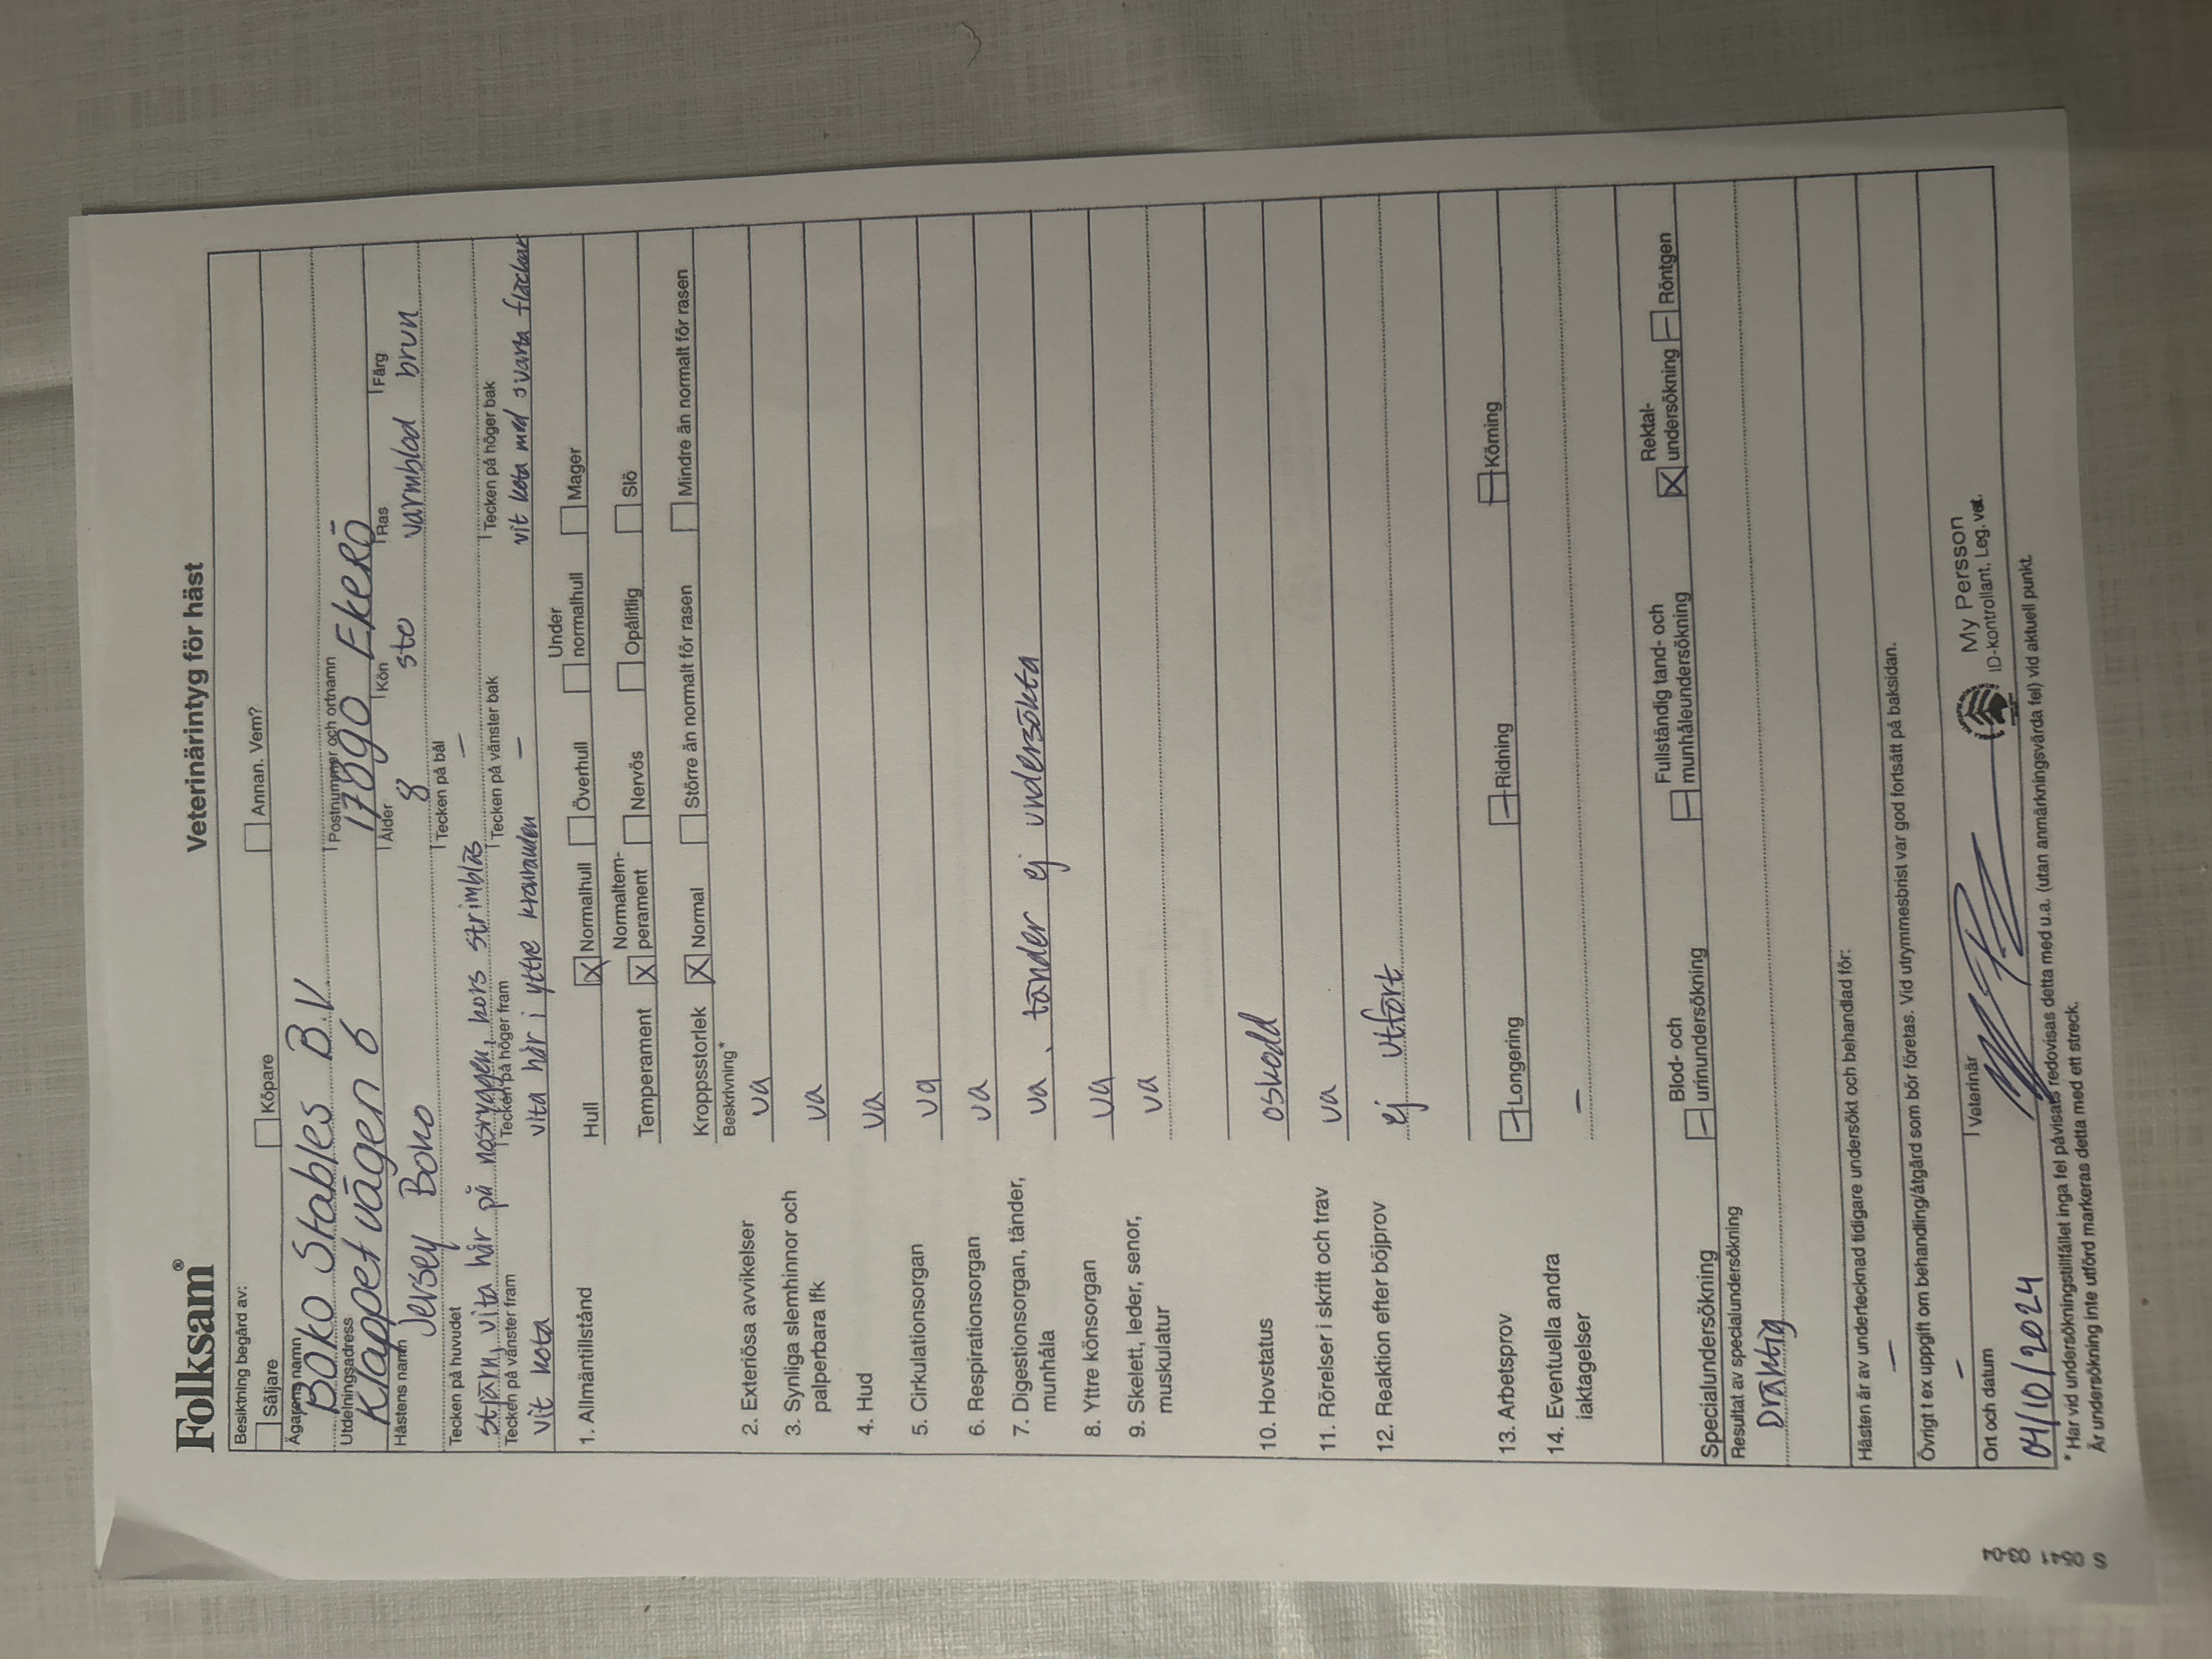 Folksam®
Veterinärintyg för häst
Besiktning begärd av:
Säljare Köpare Annan. Vem?
Ägarens namn
Boko Stables B.V.
Utdelningsadress Postnummer och ortnamn
Klappetvägen 6 17890 Ekerö
Hästens namn Ålder Kön Ras Färg
Jersey Boko 8 sto varmblod brun
Tecken på huvudet Tecken på bål
stjärn, vita hår på nosryggen, kors strimbläs –
Tecken på vänster fram Tecken på höger fram Tecken på vänster bak Tecken på höger bak
vit kota vita hår i yttre kronranden – vit kota med svarta fläckar
1. Allmäntillstånd Hull X Normalhull Överhull Under normalhull Mager
Temperament X Normaltem-perament Nervös Opålitlig Slö
Kroppsstorlek X Normal Större än normalt för rasen Mindre än normalt för rasen
Beskrivning*
2. Exteriösa avvikelser ua
3. Synliga slemhinnor och ua
palperbara lfk
4. Hud ua
5. Cirkulationsorgan ua
6. Respirationsorgan ua
7. Digestionsorgan, tänder, ua, tänder ej undersökta
munhåla
8. Yttre könsorgan ua
9. Skelett, leder, senor, ua
muskulatur
10. Hovstatus oskodd
11. Rörelser i skritt och trav ua
12. Reaktion efter böjprov ej utfört
13. Arbetsprov – Longering – Ridning – Körning
14. Eventuella andra –
iaktagelser
Specialundersökning – Blod- och urinundersökning – Fullständig tand- och munhåleundersökning X Rektal-undersökning – Röntgen
Resultat av specialundersökning
Dräktig
Hästen är av undertecknad tidigare undersökt och behandlad för:
–
Övrigt t ex uppgift om behandling/åtgärd som bör företas. Vid utrymmesbrist var god fortsätt på baksidan.
–
Ort och datum Veterinär
04/10/2024
My Persson
ID-kontrollant, Leg. vet.
* Har vid undersökningstillfället inga fel påvisats redovisas detta med u.a. (utan anmärkningsvärda fel) vid aktuell punkt.
Är undersökning inte utförd markeras detta med ett streck.